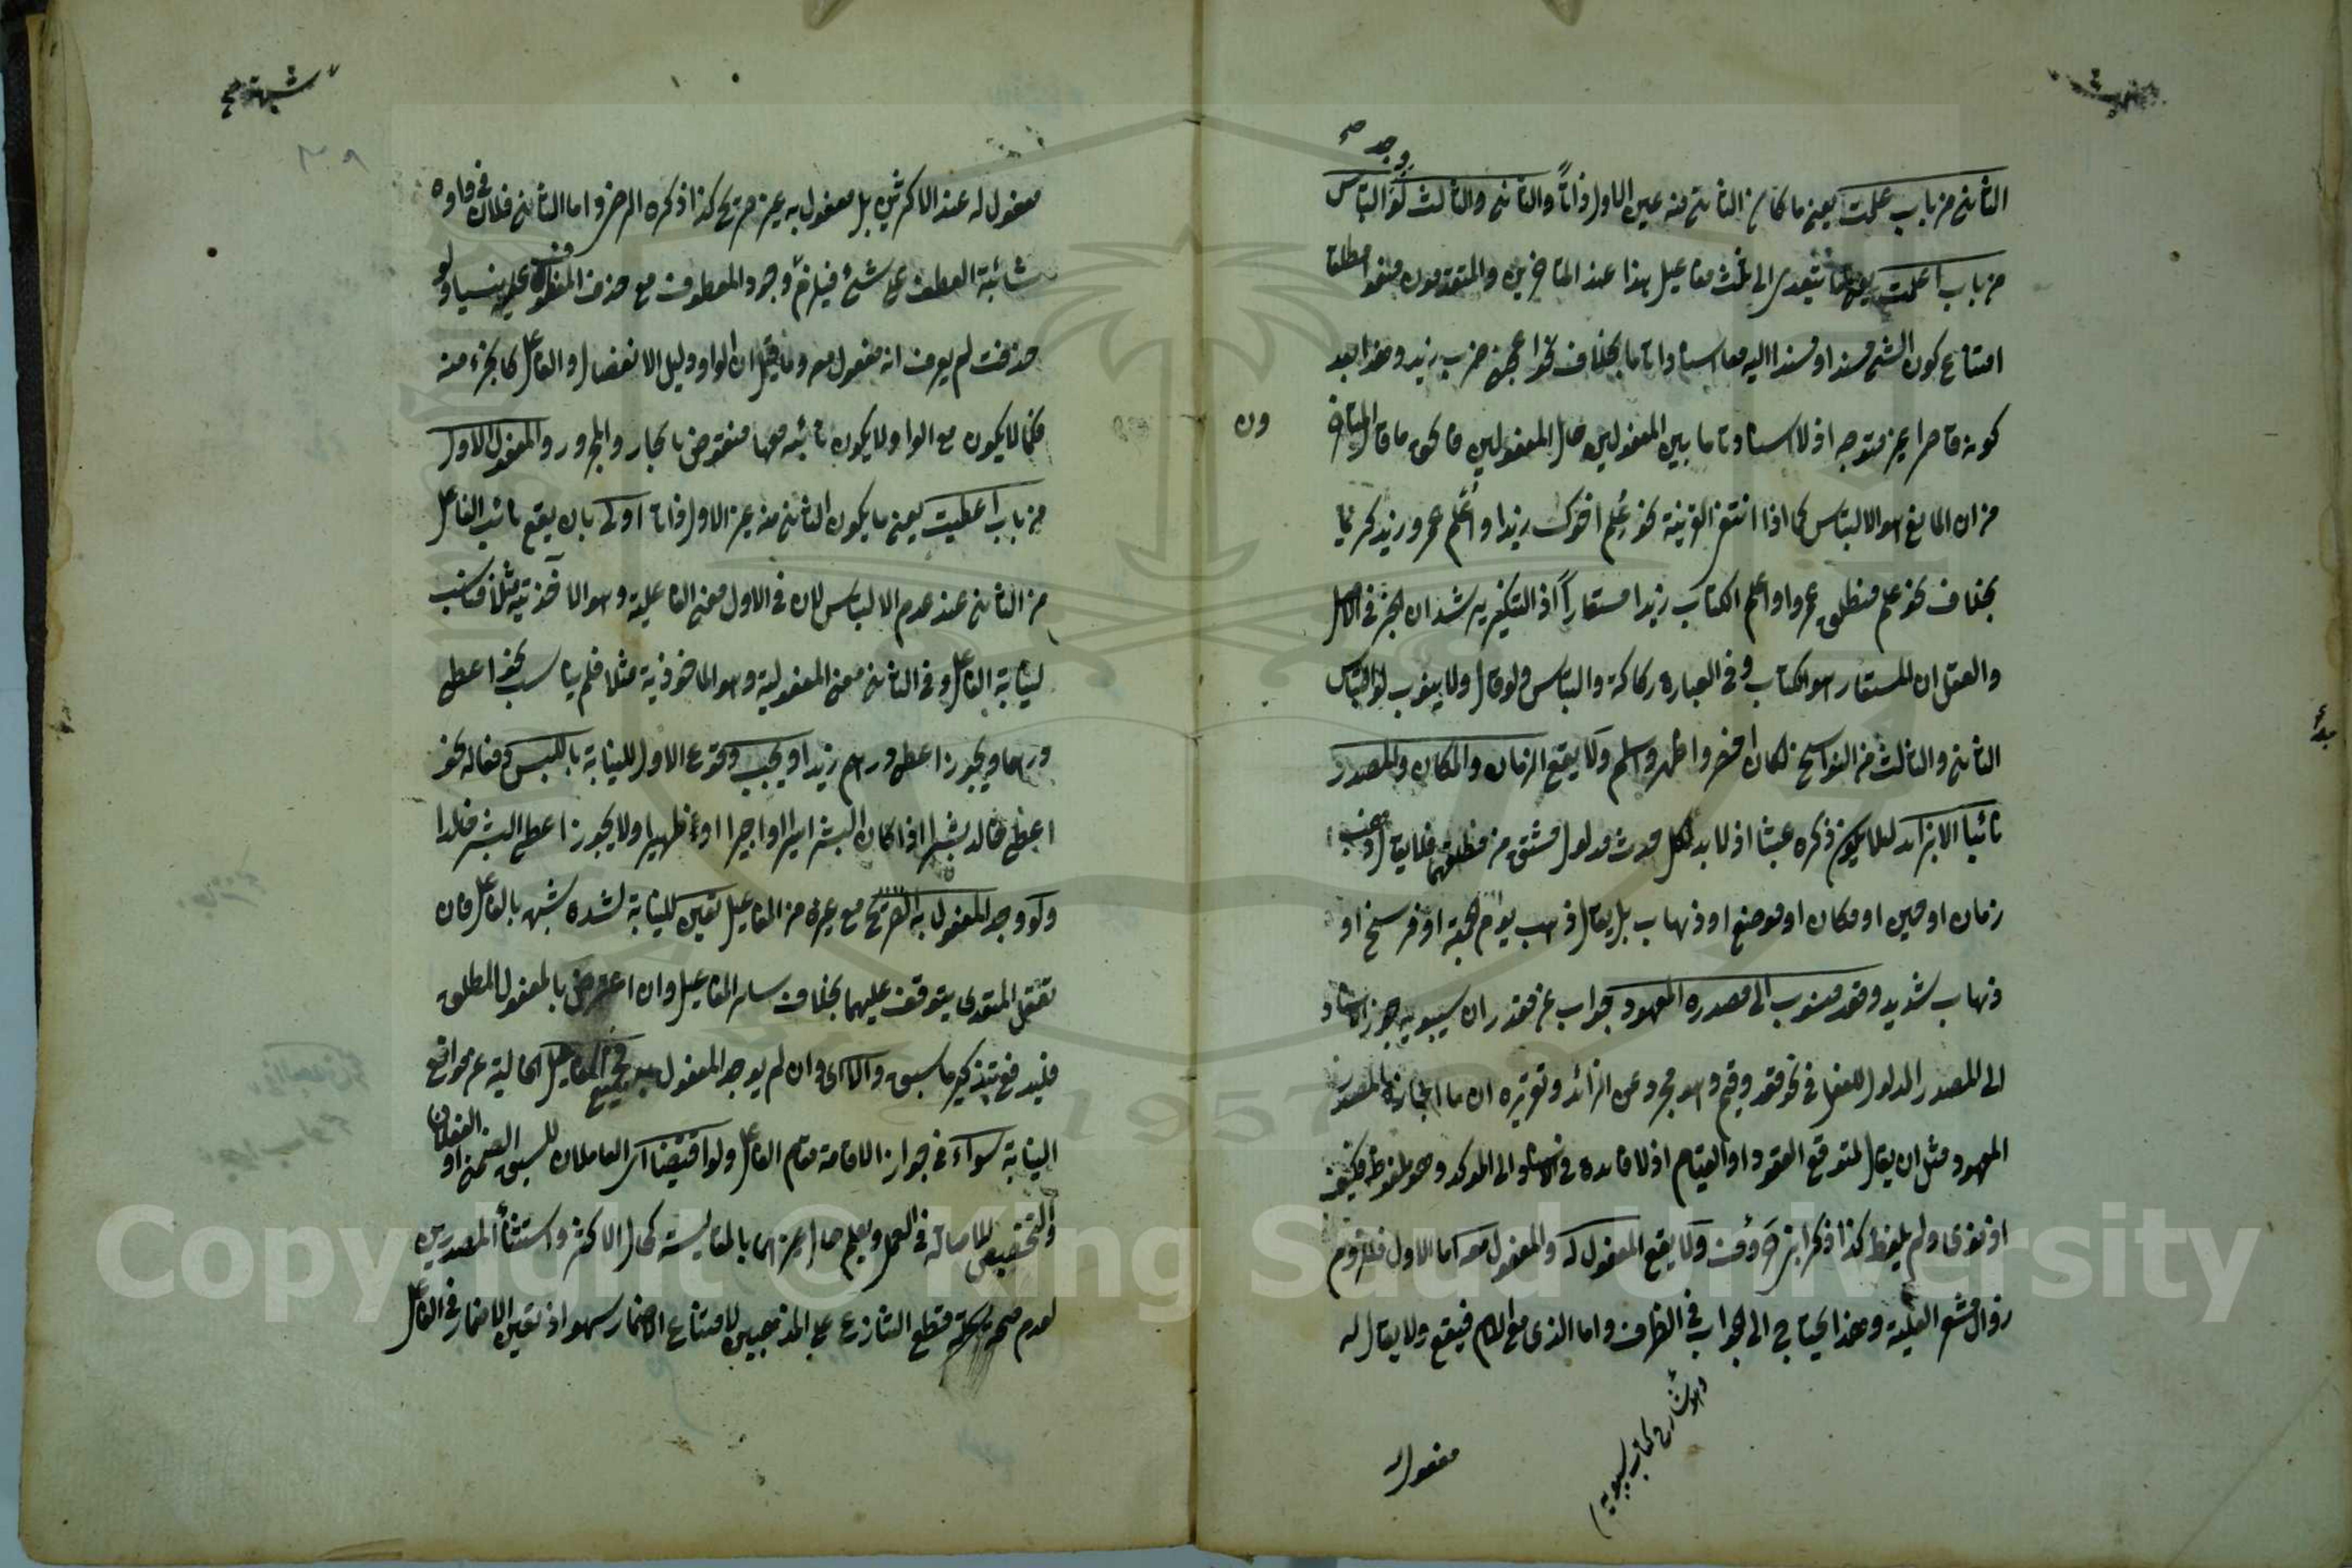 الثاني من باب علمت يعني ما كان الثاني منه عين الاول ذاتاً والثاني والثالث لو التباس
من باب اعلمت يعني ما يتعدى الى ثلث مفاعيل هذا عند المتأخرين والمتقدمون منعوا مطلقا
امتناع كون الشئ مسندا ومسندا اليه معا اسنادا تاما بخلاف نحو اعجبني ضرب زيد وهذا بعد
كونه قاصرا غير متوجه اذ لا اسناد تاما بين المفعولين حال المفعولين فالحق ما قال المتأخر
ون
من ان المانع هو الالتباس كما اذا انتفى القرينة نحو عُلم اخوك زيدا واُعلم عمرو زيد كريما
بخلاف نحو علم منطلق عمروا واعلم الكتاب زيدا مستعاراً اذ التنكير يرشد ان الخبر في الاصل
والعقل ان المستعار هو الكتاب وفي العبارة ركاكة والتباس ولو قال ولا ينوب لو التباس
الثاني والثالث من النواسخ لكان اخصر واظهر واسلم ولا يقع الزمان والمكان والمصدر
نائبا الا بزائد لئلا يكون ذكره عبثا اذ لا بد لكل حدث مدلول مشتق من مطلقهما فلا يقال ذهب
زمان او حين او مكان او موضع او ذهاب بل يقال ذهب يوم الجمعة او فرسخ او
ذهاب شديد وقعد منسوب الى مصدره المعهود جواب عن مقدر ان سيبويه جوز الاسناد
الى المصدر المدلول للفعل في نحو قعد وقيم وهو مجرد عن الزائد وتقريره ان ما اجازه المصدر
المعهود مثل ان يقال لمتوقع القعود او القيام اذ لا فائدة في الاسناد الى المؤكد وهو ملفوظ فكيف
اذ نوى ولم يلفظ كذا ذكر ابن خروف ولا يقع المفعول له والمفعول معه اما الاول فلزوم
زوال مشعر العلية وهذا يحتاج الى الجواب في الظرف واما الذي مع اللام فيقع ولا يقال له
وهو شارح كتاب سيبويه
مفعول له
مفعول له عند الاكثرين بل مفعول به غير صريح كذا ذكره الرضي واما الثاني فلان في واوه
شائبة العطف على شئ فيلزم وجود المعطوف مع حذف المعطوف عليه نسيا ولو
حذفت لم يعرف انه مفعول معه وما قيل ان الواو دليل الانفصال والفاعل كالجزء منه
فكما لا يكون مع الواو لا يكون نائبه معها منقوض بالجار والمجرور والمفعول الاول
من باب اعطيت يعني ما يكون الثاني منه غير الاول ذاتا اولى بان يقع نائب الفاعل
من الثاني عند عدم الالتباس لان في الاول معنى الفاعلية وهو الآخذية مثلا فناسب
لنيابة الفاعل وفي الثاني معنى المفعولية وهو الماخوذية مثلا فلم يناسب نحو اعطى
درهما ويجوز اعطى درهم زيدا ويجب وقوع الاول للنيابة باللبس ومثاله نحو
اعطى خالد بشرا اذا كان البشر اسيرا او اجيرا او ظهيرا ولا يجوز اعطى البشر خلدا
ولو وجد المفعول به الصريح مع غيره من المفاعيل تعين للنيابة لشدة شبهه بالفاعل فان
تعقل المتعدى يتوقف عليهما بخلاف سائر المفاعيل وان اعترض بالمفعول المطلق
فليدفع بتذكير ما سبق والا اى وان لم يوجد المفعول به فجميع المفاعيل الخالية عن موانع
النيابة سواء في جواز الاقامة مقام الفاعل ولو اقتضا اى العاملان للسبق الضمني او
والتحقيقى للاصالة في العمل ويعلم حال غيرها بالمقايسة كحال الاكثر واستثناء المصدرين
لعدم صحة قطع التنازع على المذهبين لامتناع الاضمار سهو اذ تعين الاضمار في الفاعل